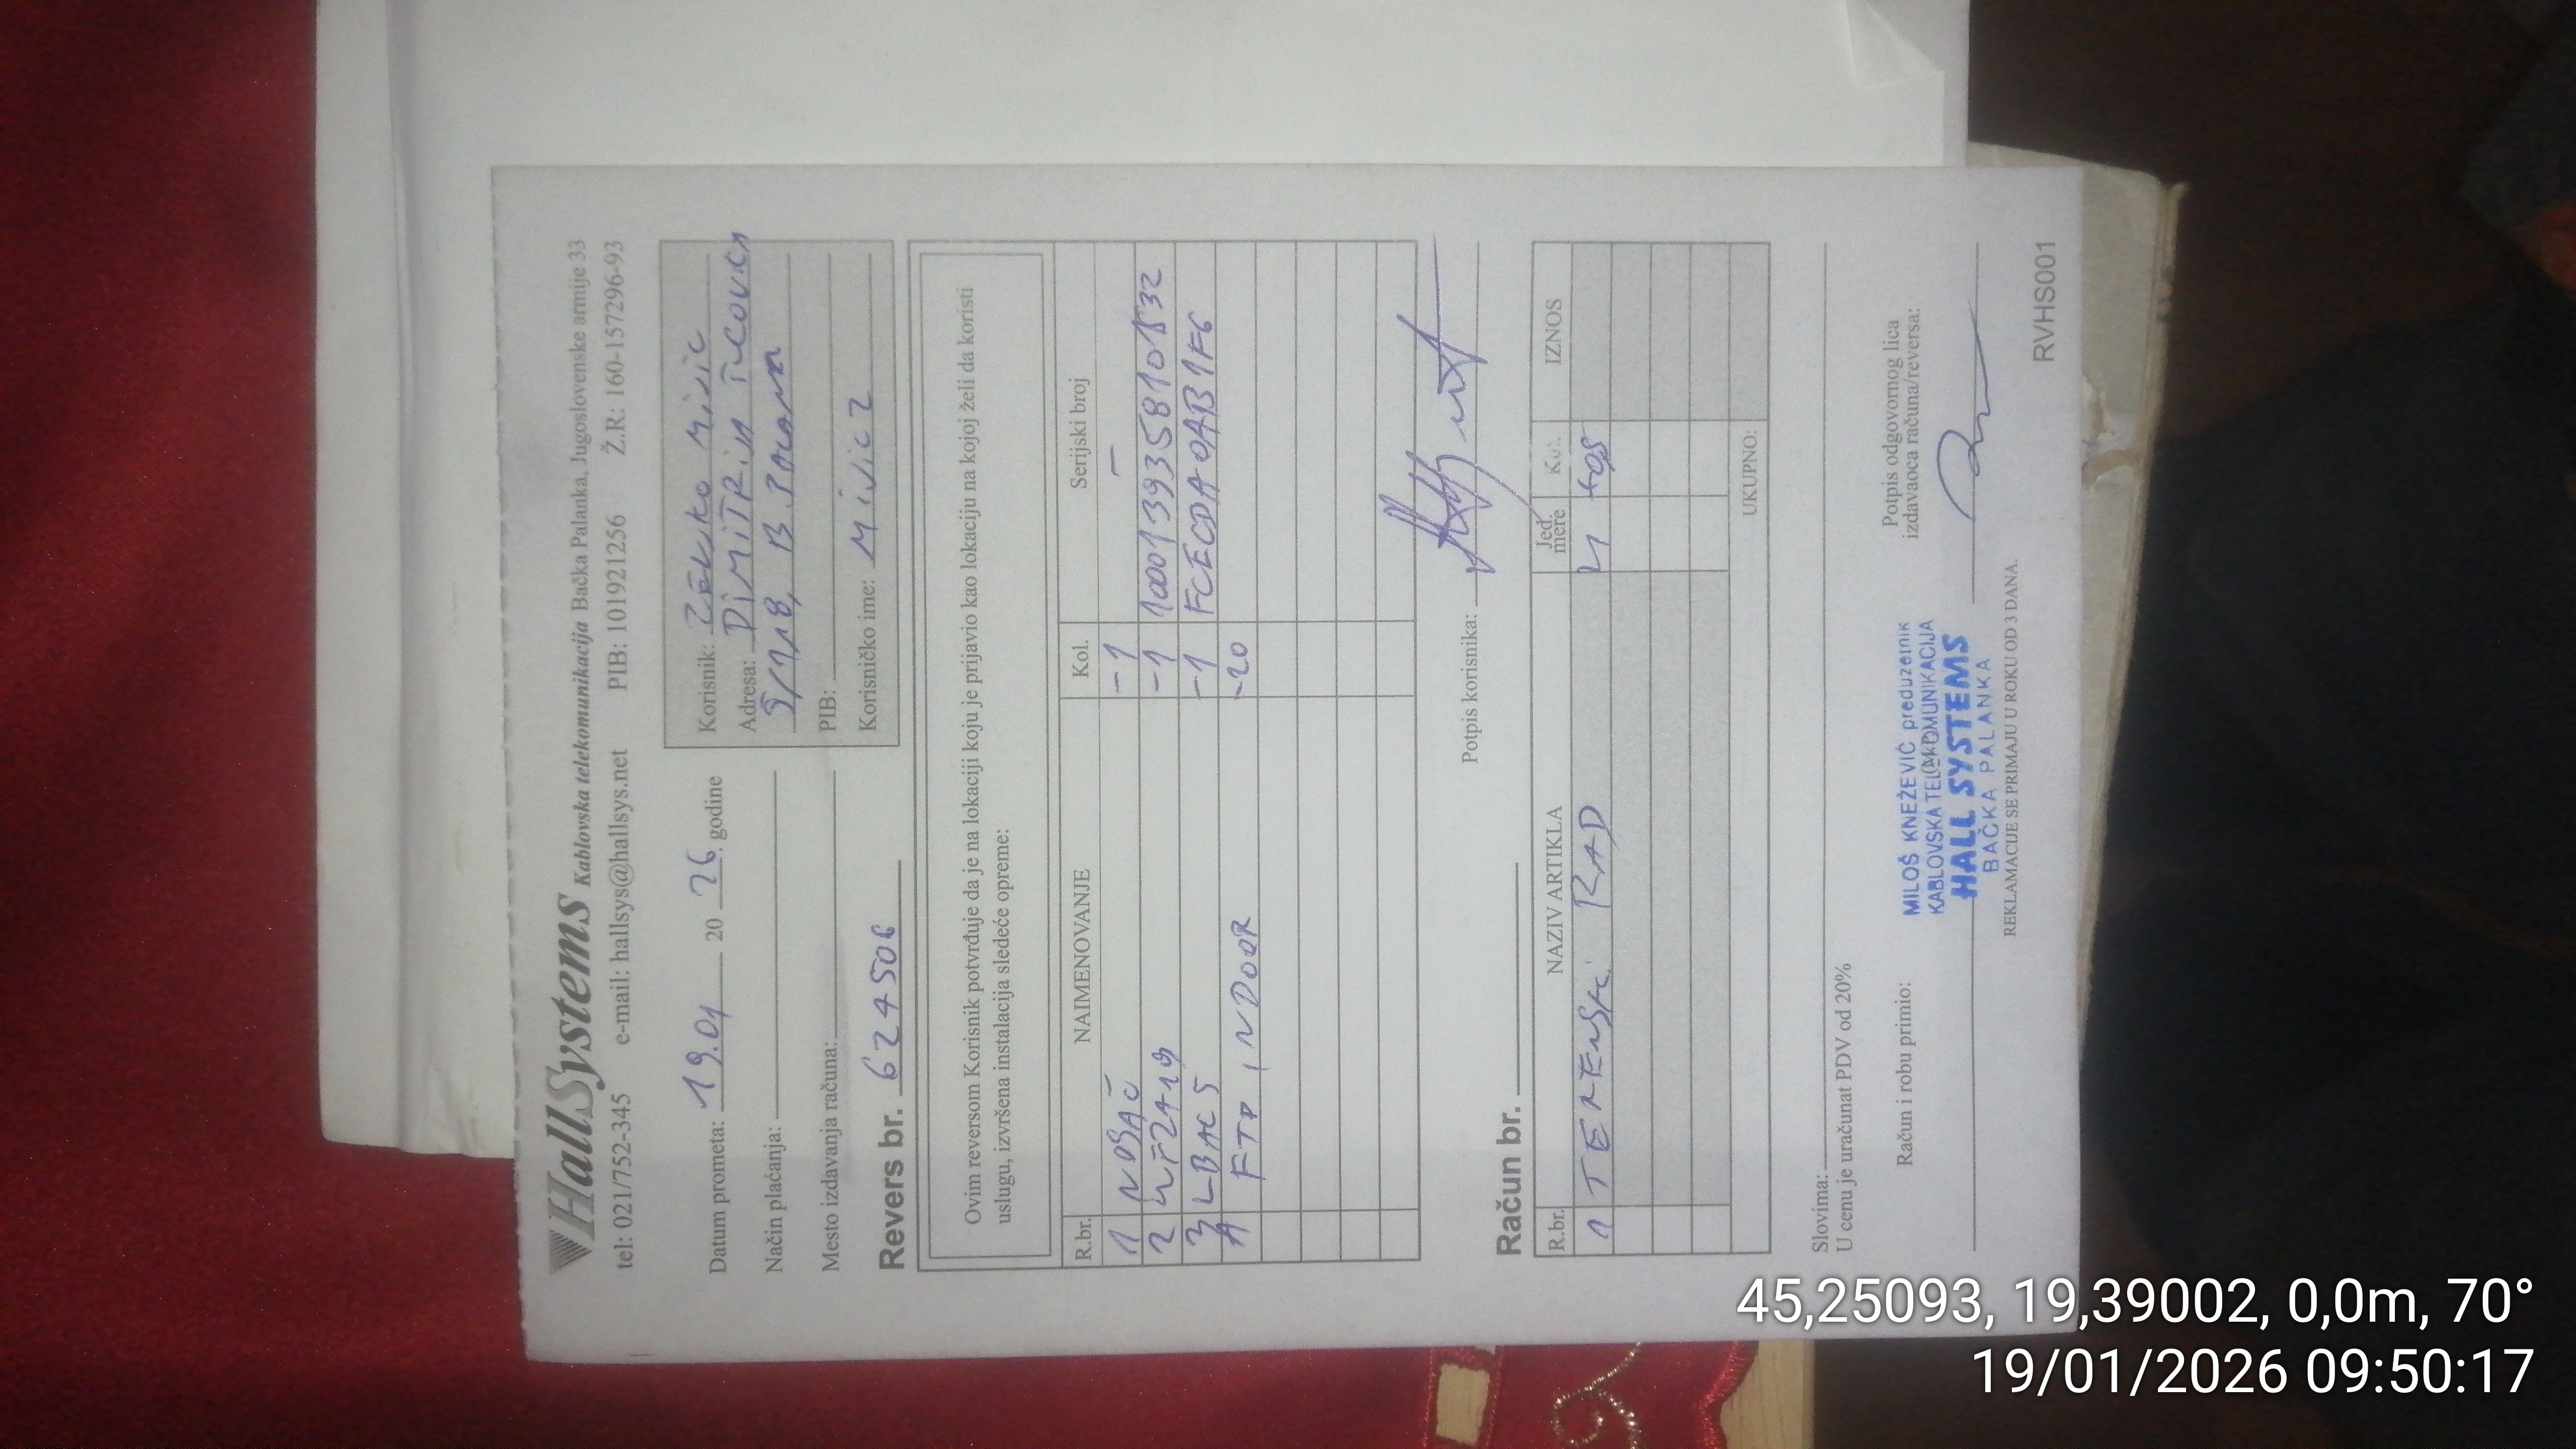 HallSystems Kablovska telekomunikacija Bačka Palanka, Jugoslovenske armije 33
tel: 021/752-345 e-mail: hallsys@hallsys.net PIB: 101921256 Ž.R: 160-157296-93
Datum prometa: 19.01 20 26. godine
Način plaćanja:
Mesto izdavanja računa:
Korisnik:
Adresa: DiMiTRiJA
PIB:
Korisničko ime:
Revers br. 624506
Ovim reversom Korisnik potvrđuje da je na lokaciji koju je prijavio kao lokaciju na kojoj želi da koristi
uslugu, izvršena instalacija sledeće opreme:
R.br. NAIMENOVANJE Kol. Serijski broj
1 NOSAČ -1 -
2 -1
3 LBAC5 -1 FCECDA0AB1F6
4 FTP INDOOR -20
Potpis korisnika:
Račun br.
R.br. NAZIV ARTIKLA Jed. mere Kol. IZNOS
1 TERENSKI RAD
UKUPNO:
Slovima:
U cenu je uračunat PDV od 20%
Račun i robu primio:
MILOŠ KNEŽEVIĆ preduzetnik
KABLOVSKA TELEKOMUNIKACIJA
HALL SYSTEMS
BAČKA PALANKA
Potpis odgovornog lica
izdavaoca računa/reversa:
REKLAMACIJE SE PRIMAJU U ROKU OD 3 DANA.
RVHS001
45,25093, 19,39002, 0,0m, 70°
19/01/2026 09:50:17